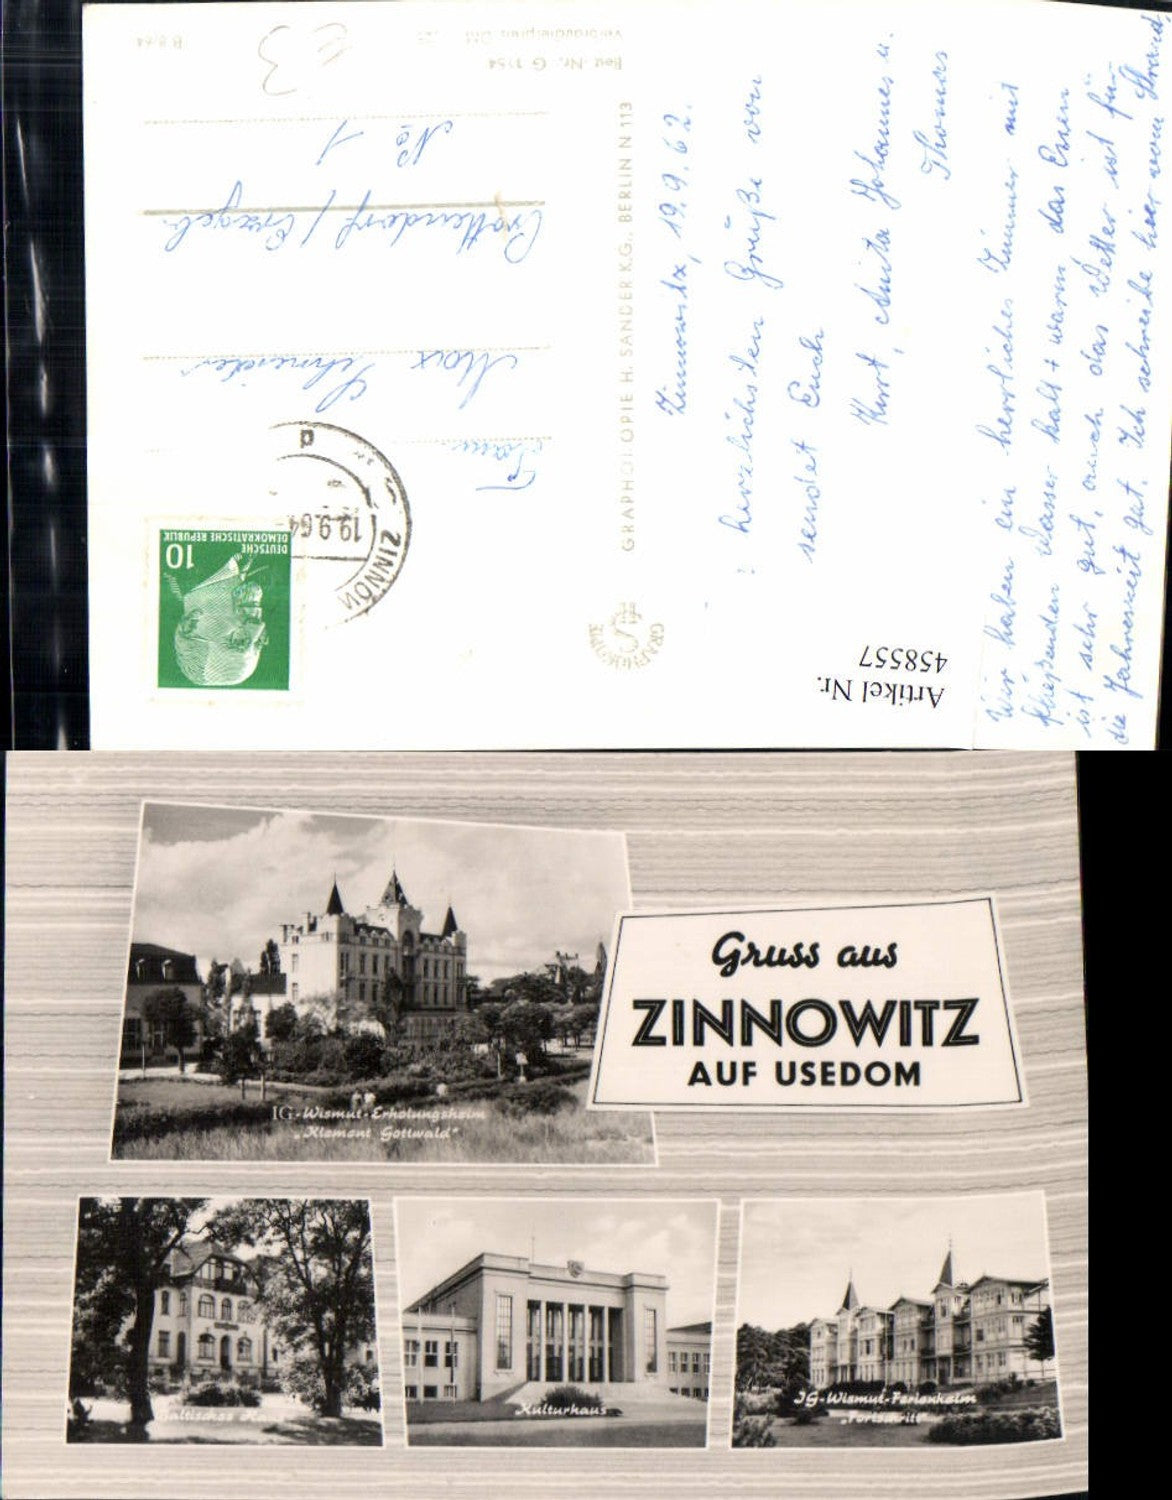 B 8/64
Best.-Nr. G 1154
€3
Frau
Max Schneider
Crottendorf / Erzgeb.
No 1
GRAPHOKOPIE H. SANDER K.G., BERLIN N 113
10
DEUTSCHE
DEMOKRATISCHE REPUBLIK
ZINNOW
19.9.64
d
Artikel Nr.
458557
Zinnowitz, 19.9.62.
herzlichsten Grüße von
sendet Euch
Kurt, Anita Johannes u.
Thomas
Wir haben ein herrliches Zimmer mit
fließenden Wasser kalt + warm, das Essen
ist sehr gut, auch das Wetter ist für
die Jahreszeit gut. Ich schreibe hier vom Strand,
Gruss aus
ZINNOWITZ
AUF USEDOM
IG-Wismut-Erholungsheim
„Klement Gottwald"
Baltisches
Kulturhaus
IG-Wismut-Ferienheim
„Fortschritt"